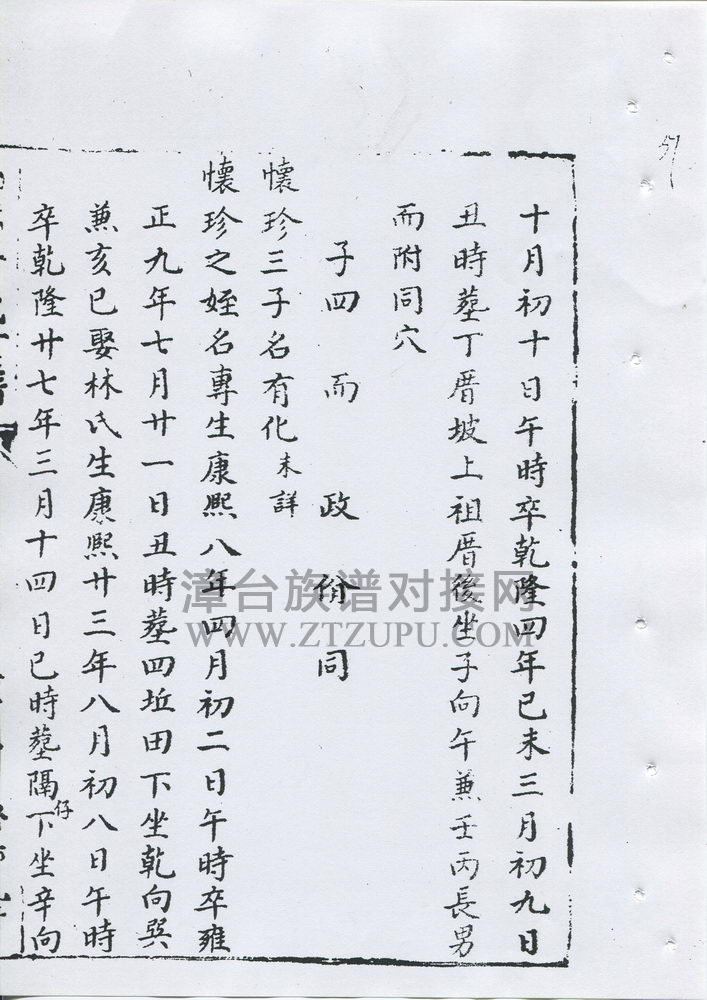 57
十月初十日午時卒乾隆四年己未三月初九日
丑時塟丁厝坡上祖厝後坐子向午兼壬丙長男
而附同穴
子四 而 政 份 同
懷珍三子名有化未詳
懷珍之姪名專生康熙八年四月初二日午時卒雍
正九年七月廿一日丑時塟四坵田下坐乾向巽
兼亥巳娶林氏生康熙廿三年八月初八日午時
卒乾隆廿七年三月十四日巳時塟隔仔下坐辛向
漳台族谱对接网
WWW.ZTZUPU.COM